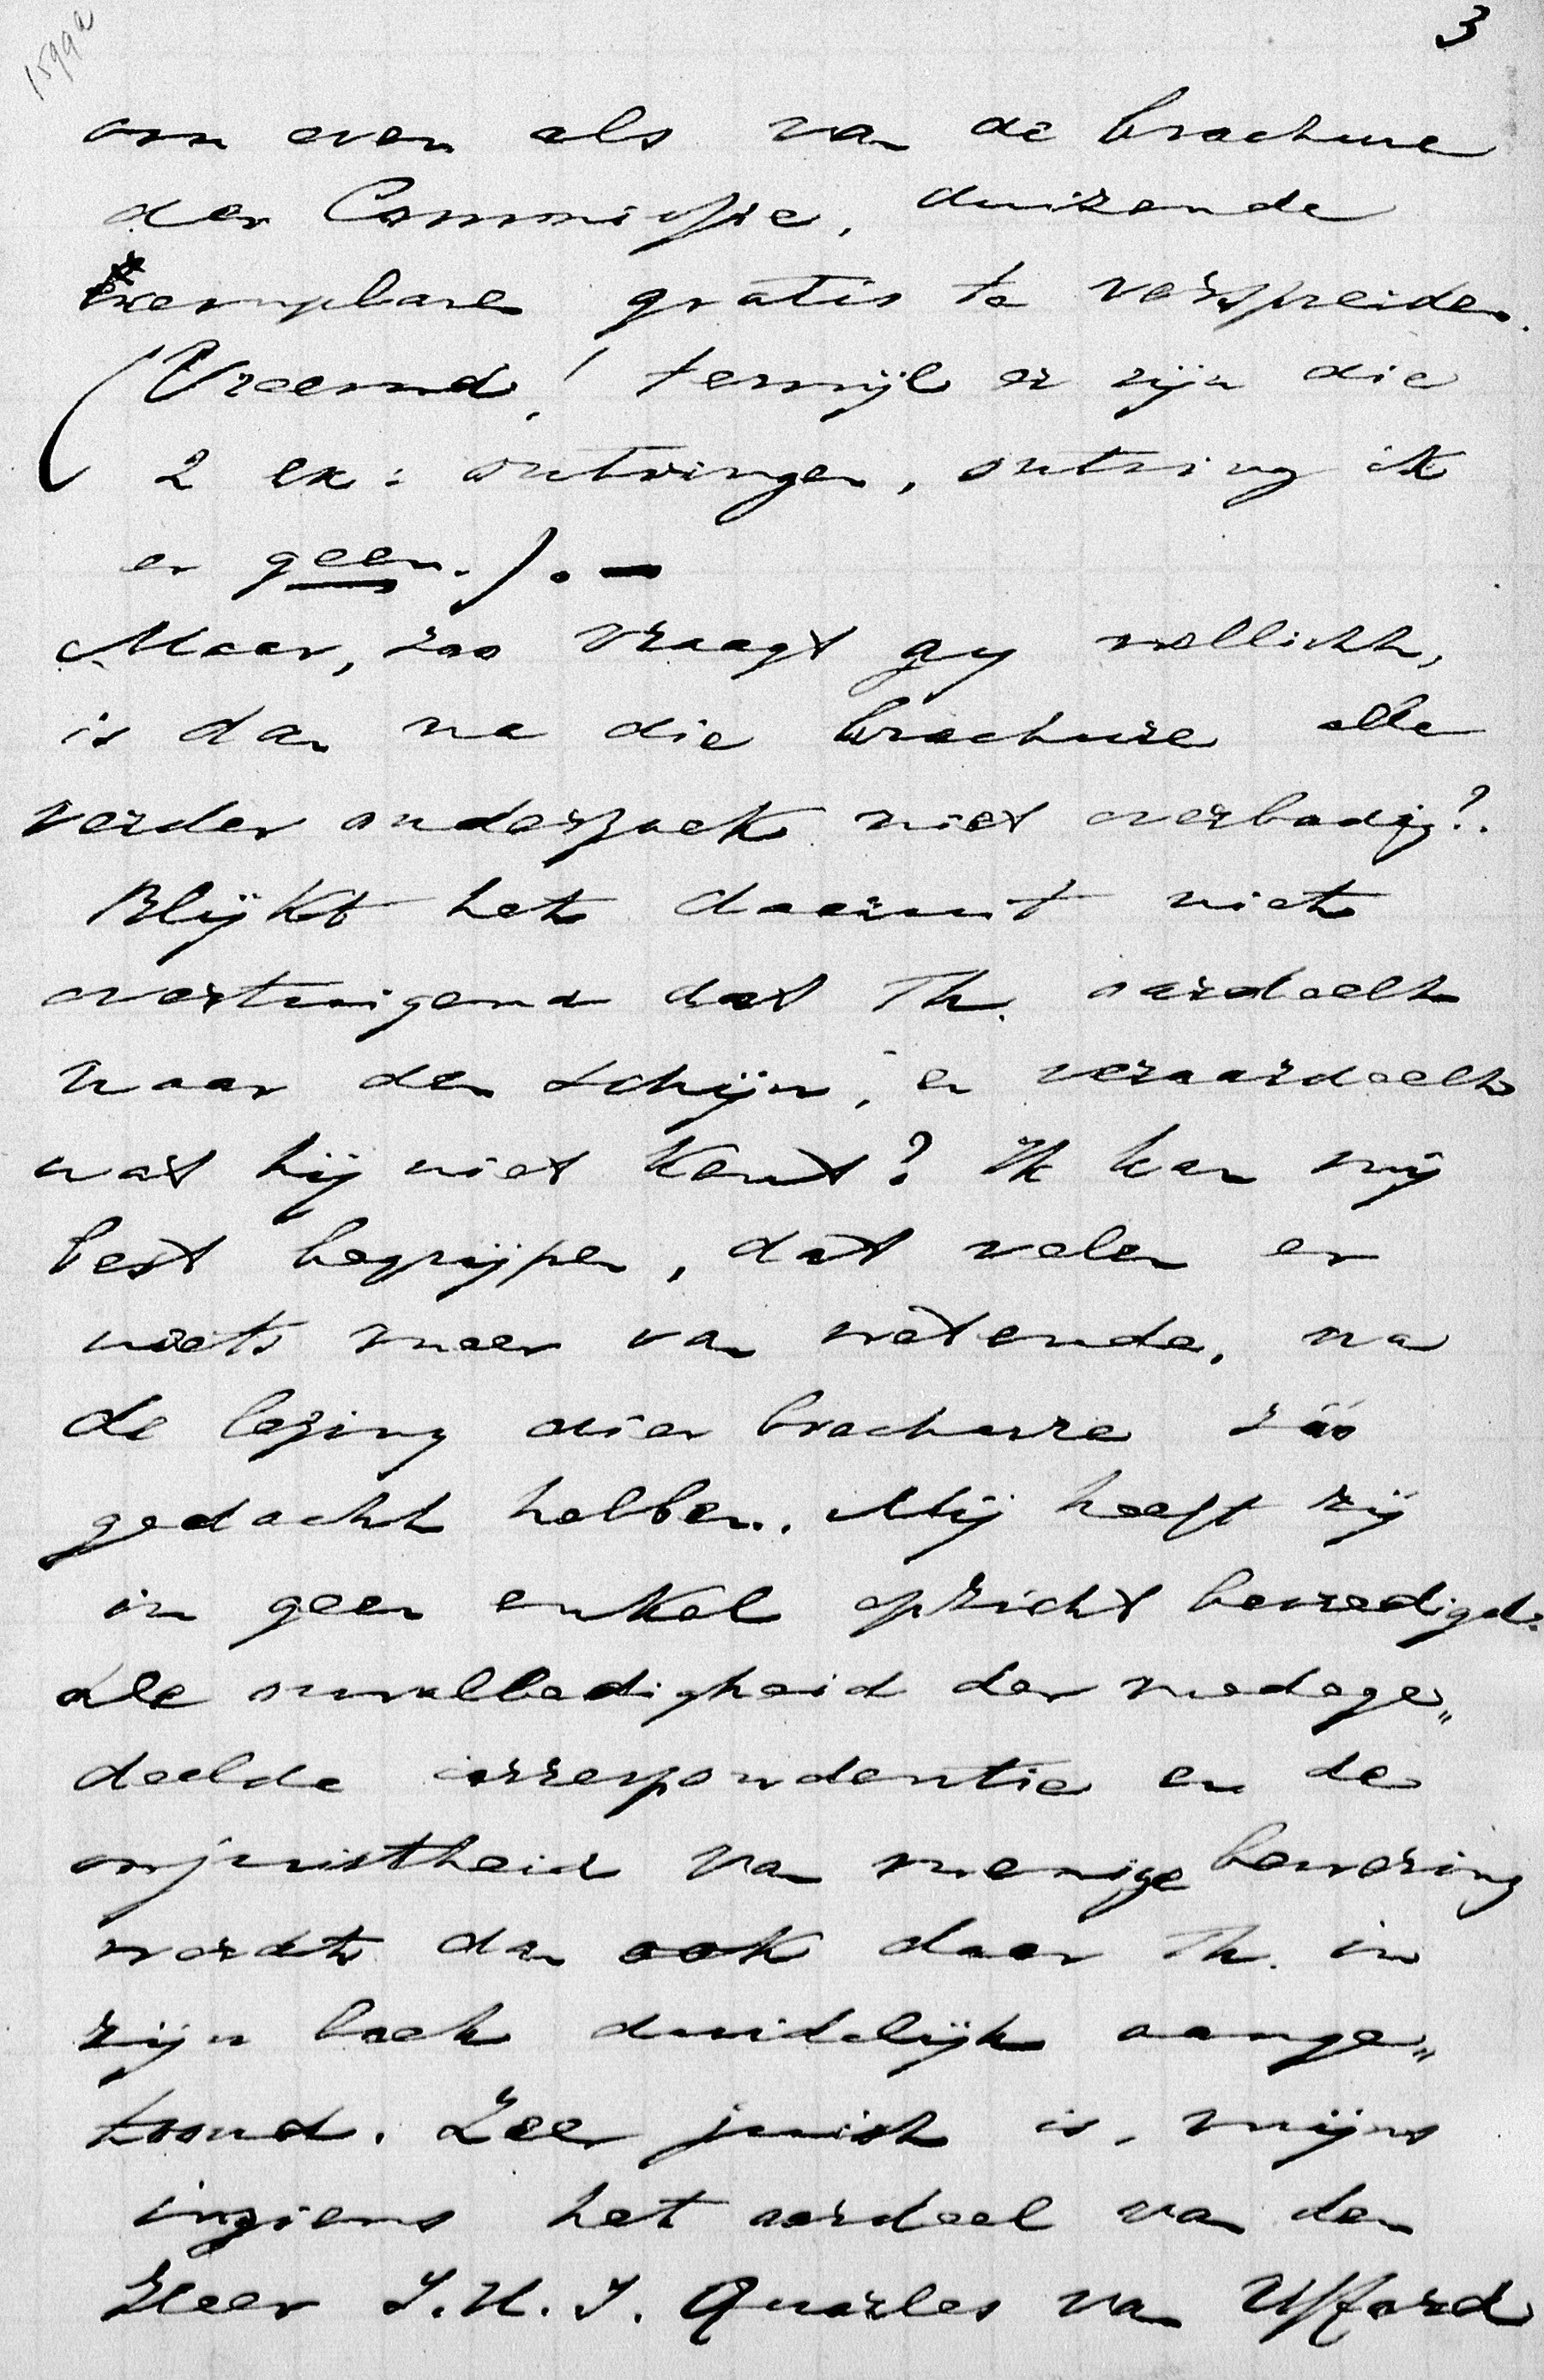 1599a
3
om even als van de brochure
der Commissie, duizende
exemplaren gratis te verspreiden.
(Vreemd! terwijl er zijn die
2 ex: ontvingen, ontving ik
er geen.). —
Maar, zoo vraagt gy wellicht,
is dan na die brochure alle
verder onderzoek niet overbodig?.
Blijkt het daaruit niet
overtuigend dat Th. oordeelt
naar den schijn, en veroordeelt
wat hij niet kent? Ik kan mij
best begrijpen, dat velen er
niets meer van wetende, na
de lezing dier brochure zóó
gedacht hebben. Mij heeft zij
in geen enkel opzicht bevredigd.
De onvolledigheid der medege„
deelde correspondentie en de
onjuistheid van menige bewering
wordt dan ook door Th. in
zijn boek duidelijk aange„
toond. Zeer juist is, mijns
inziens het oordeel van den
Heer J. H. J. Quarles van Ufford